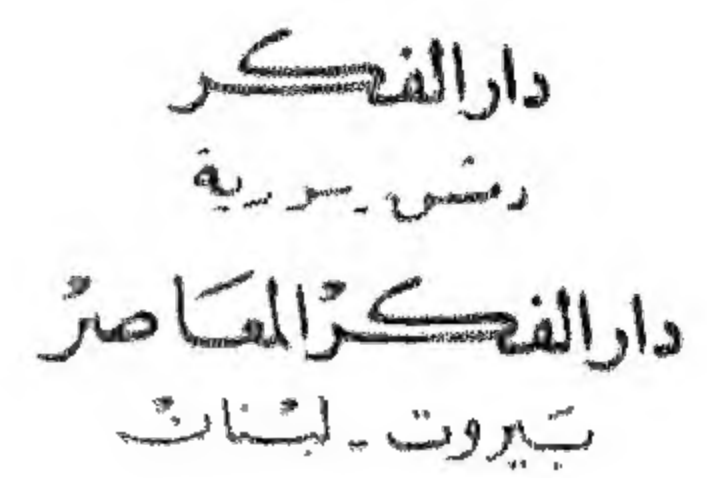 دار الفكر
دمشق - سورية
دار الفكر المعاصر
بيروت - لبنان